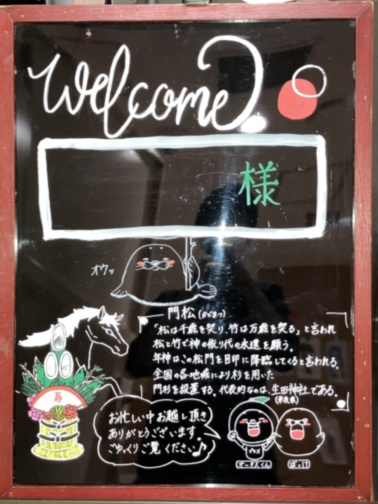 Welcome
様
オウッ
門松(かどまつ)
「松は千歳を契り、竹は万歳を契る」と言われ
松と竹で神の依り代の永遠を願う。
年神はこの松門を目印に降臨してくると言われる。
全国の各地域により杉を用いた
門杉を設置する。代表的なのは、生田神社である。
(兵庫県)
寿
お忙しい中お越し頂き
ありがとうございます
ごゆっくりご覧ください♪